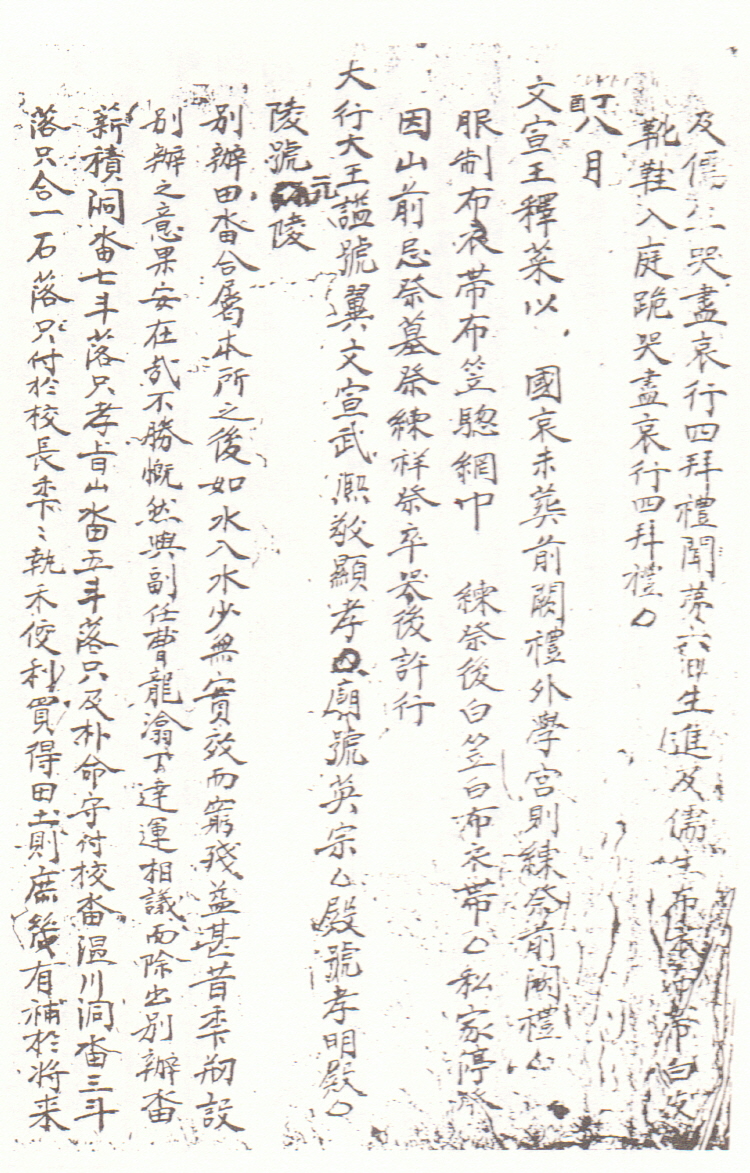 及儒生哭盡哀行四拜禮聞訃六日生進及儒生布衣布帶白皮
靴鞋入庭跪哭盡哀行四拜禮○
丁酉八月
文宣王釋菜以 國哀未葬前闕禮外學宮則練祭前闕禮○
服制布衣帶布笠驄網巾 練祭後白笠白布衣帶○私家停祭
因山前忌祭墓祭練祥祭卒哭後許行
大行大王諡號翼文宣武熙敬顯孝○廟號英宗○殿號孝明殿○
陵號元陵
別辦田畓合屬本所之後如水入水少無實效而窮殘益甚昔年刱設
別辦之意果安在哉不勝慨然與副任曹龍瀚 達運相議而除出別辦畓
薪積洞畓七斗落只孝旨山畓五斗落只及朴命守付校畓溫川洞畓三斗
落只合一石落只付於校長年〻執禾使利買得田土則庶幾有補於將來